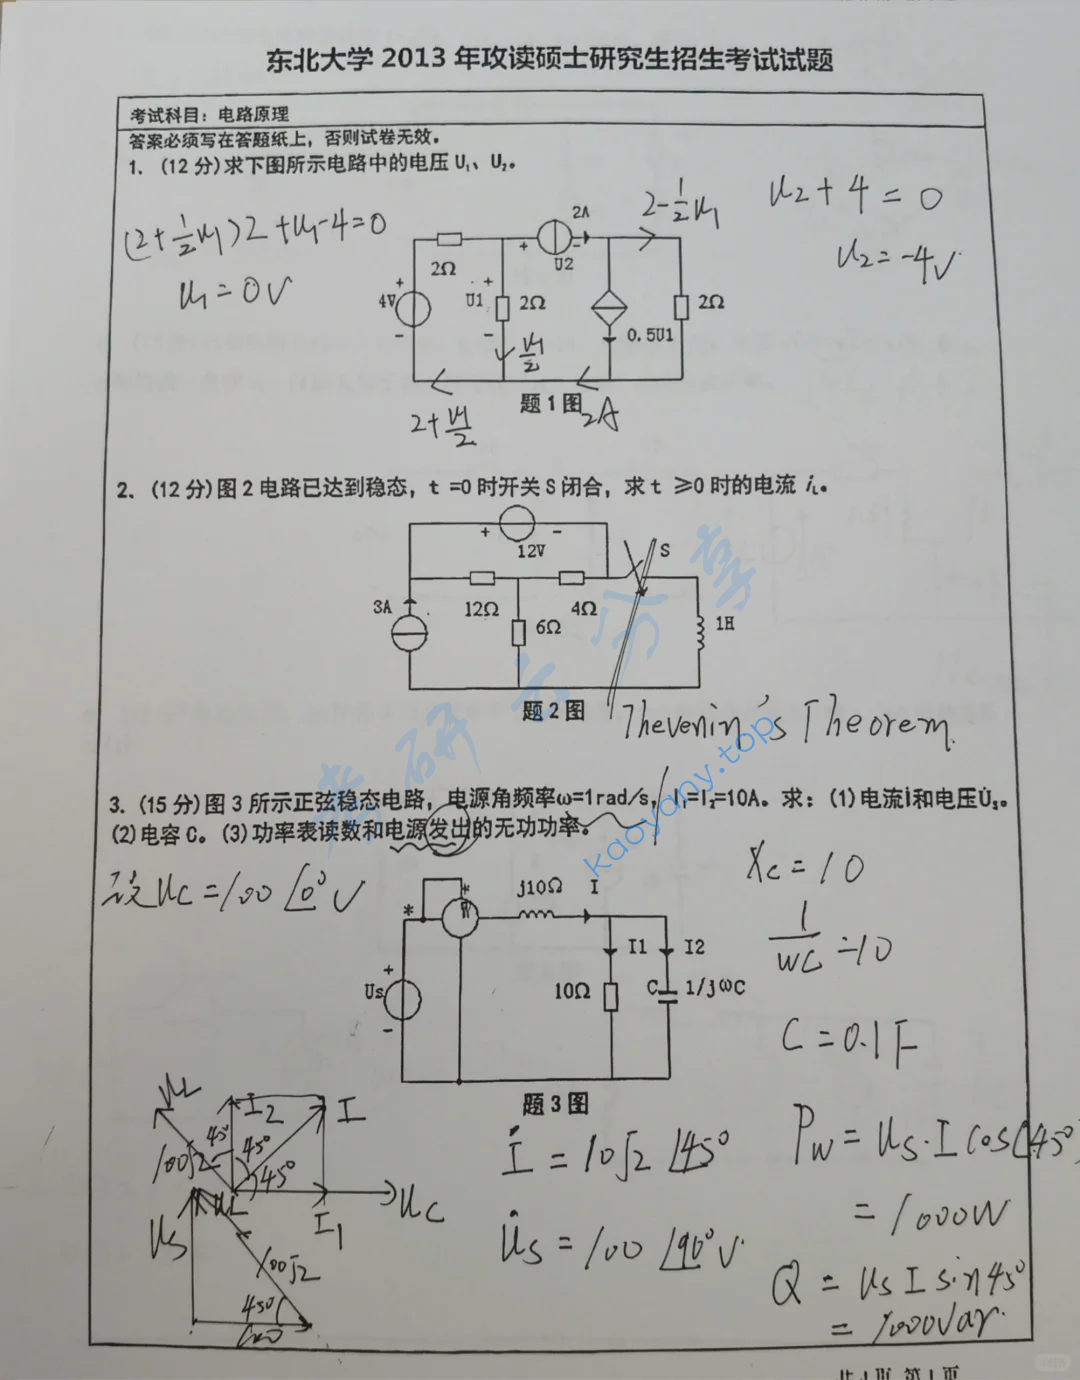 东北大学 2013 年攻读硕士研究生招生考试试题
考试科目：电路原理
答案必须写在答题纸上，否则试卷无效。
1. (12 分)求下图所示电路中的电压 U₁、U₂。
(2+½u₁)2+u₁-4=0
u₁=0V
2-½u₁
u₂+4=0
u₂=-4V
2A
2Ω
U2
4V
U1
2Ω
2Ω
0.5U1
u₁/2
2+u₁/2
题 1 图
2A
2. (12 分)图 2 电路已达到稳态，t =0 时开关 S 闭合，求 t ≥0 时的电流 i_L。
12V
S
3A
12Ω
4Ω
6Ω
1H
题 2 图
Thevenin's Theorem
考研云分享
kaoyany.top
3. (15 分)图 3 所示正弦稳态电路，电源角频率ω=1rad/s，I₁=I₂=10A。求：(1)电流İ和电压U̇s。
(2)电容 C。(3)功率表读数和电源发出的无功功率。
设u̇c=100∠0°V
Xc=10
1/WC=10
C=0.1F
j10Ω
I
*
*
W
I1
I2
Us
10Ω
C
1/jωC
题 3 图
UL
I2
I
45°
45°
45°
100√2
UL
UC
I1
US
100√2
45°
100
İ=10√2∠45°
U̇s=100∠90°V
Pw=Us·I cos(45°)
=1000W
Q=UsI sin45°
=1000Var
共 1 页 第 1 页